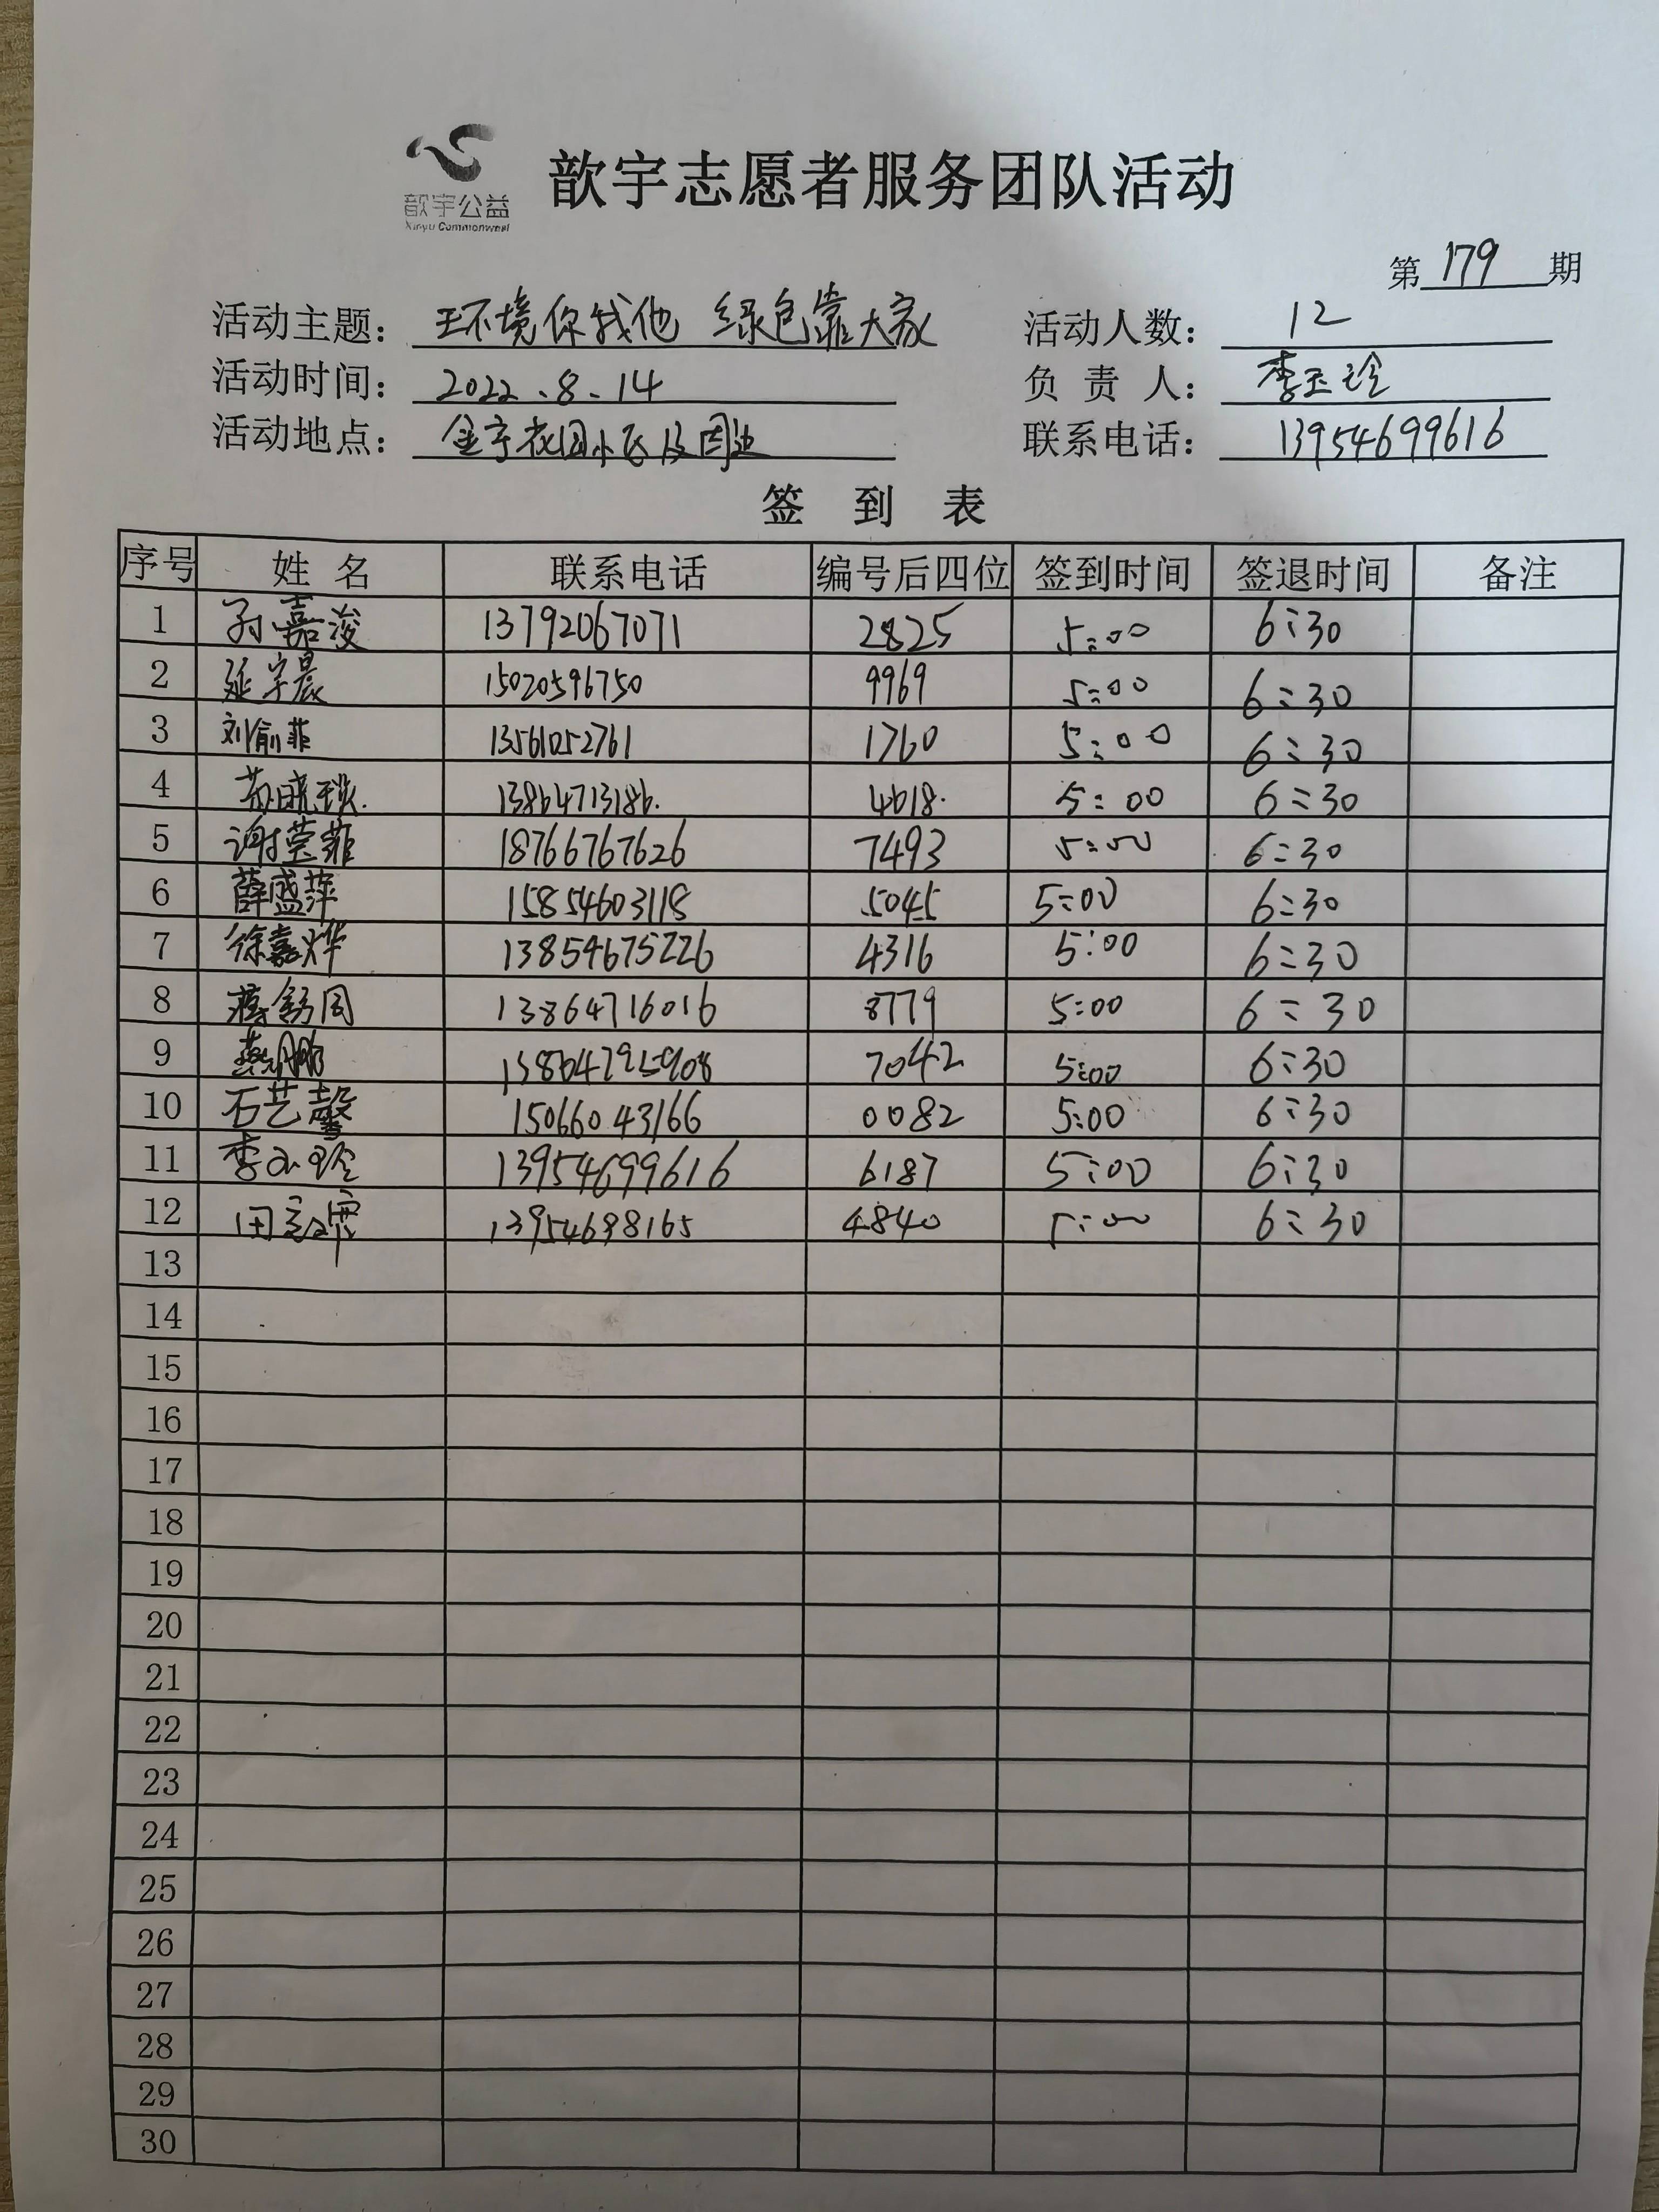 歆宇公益
Xinyu Commonweal
歆宇志愿者服务团队活动
第 179 期
活动主题: 环境你我他 绿色靠大家 活动人数: 12
活动时间: 2022.8.14 负责人: 李玉玲
活动地点: 金宇花园小区及周边 联系电话: 13954699616
签到表
序号 姓名 联系电话 编号后四位 签到时间 签退时间 备注
1 孙嘉浚 13792067071 2825 5:00 6:30
2 延宇晨 15020596750 9969 5:00 6:30
3 刘俞菲 13561052761 1760 5:00 6:30
4 13864713186. 4618. 5:00 6:30
5 谢莹菲 18766767626 7493 5:00 6:30
6 薛盛萍 15854603118 5045 5:00 6:30
7 徐嘉烨 13854675226 4316 5:00 6:30
8 13864716016 8779 5:00 6:30
9 7042 5:00 6:30
10 石艺馨 15066043166 0082 5:00 6:30
11 李玉玲 13954699616 6187 5:00 6:30
12 13954698165 4840 5:00 6:30
13
14
15
16
17
18
19
20
21
22
23
24
25
26
27
28
29
30